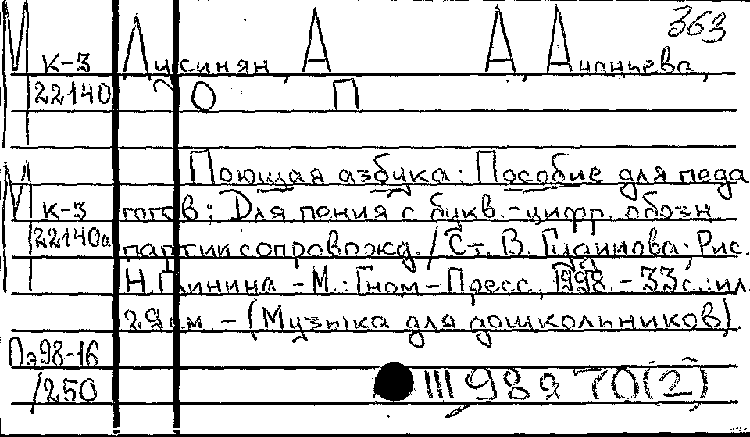 363
М К-3 Лусинян, А А, Ананьева,
22140 О П
Поющая азбука: Пособие для педа
М К-3 гогов; Для пения с букв.-цифр. обозн
22140а партии сопровожд. / Ст. В. ; Рис.
Н. - М.: Гном-Пресс, 1998. - 33 с.: ил.
29 см. - (Музыка для дошкольников)
Пэ98-16
/250 III 98 я 70(2)